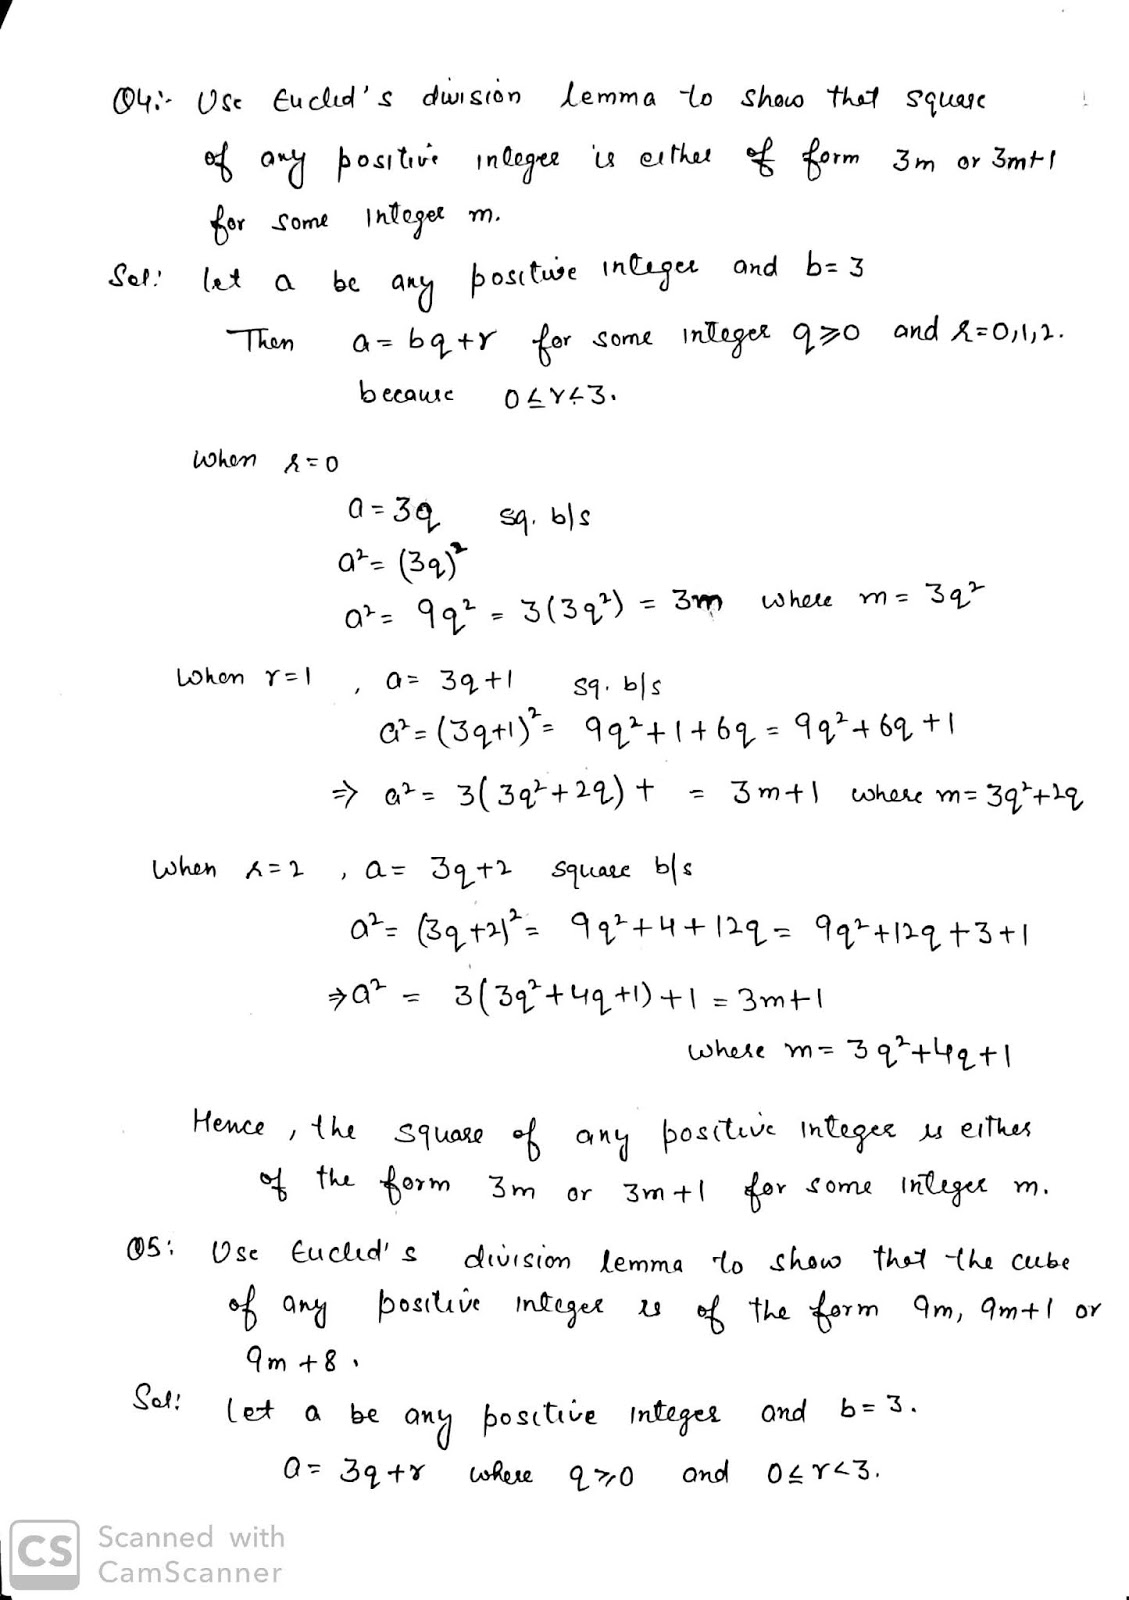 Q4:- Use Euclid's division lemma to show that square
of any positive integer is either of form 3m or 3m+1
for some integer m.
Sol: let a be any positive integer and b=3
Then a = bq+r for some integer q⩾0 and r=0,1,2.
because 0≤r<3.
When r=0
a = 3q sq. b/s
a² = (3q)²
a² = 9q² = 3(3q²) = 3m where m = 3q²
When r=1 , a = 3q+1 sq. b/s
a² = (3q+1)² = 9q²+1+6q = 9q²+6q+1
⇒ a² = 3(3q²+2q)+ = 3m+1 where m=3q²+2q
When r=2 , a = 3q+2 square b/s
a² = (3q+2)² = 9q²+4+12q = 9q²+12q+3+1
⇒a² = 3(3q²+4q+1)+1 = 3m+1
where m = 3q²+4q+1
Hence, the square of any positive integer is either
of the form 3m or 3m+1 for some integer m.
Q5: Use Euclid's division lemma to show that the cube
of any positive integer is of the form 9m, 9m+1 or
9m+8.
Sol: Let a be any positive integer and b=3.
a = 3q+r where q⩾0 and 0≤r<3.
CS Scanned with
CamScanner